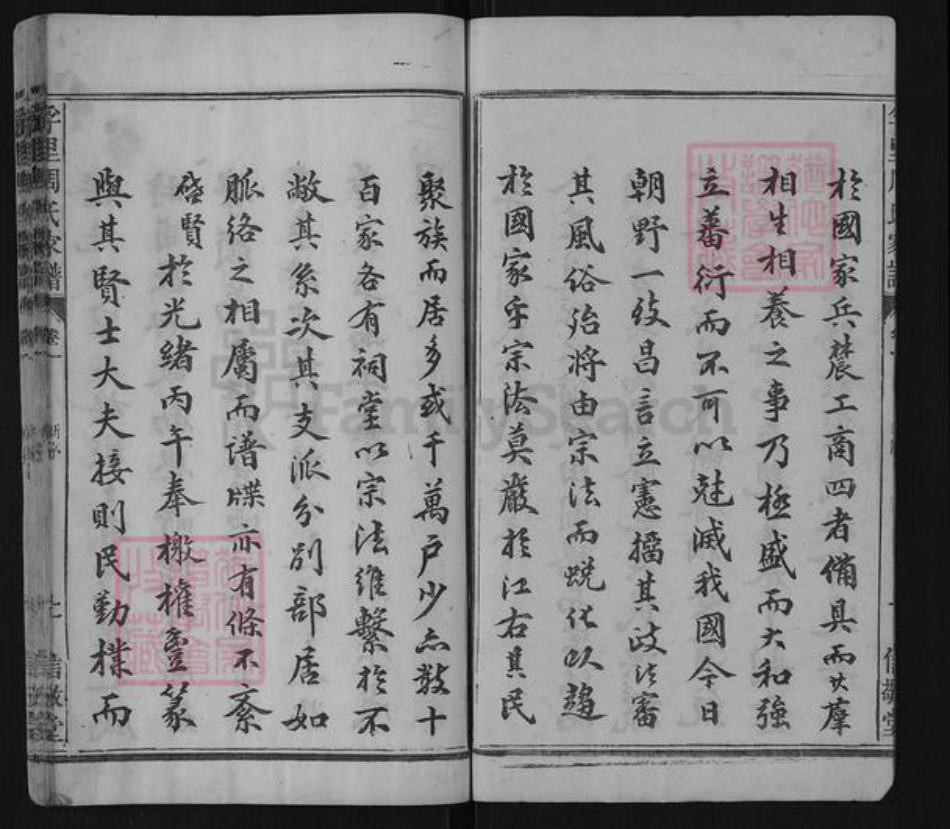 於國家兵農工商四者備具而其羣
相生相養之事乃極盛而大和強
立蕃衍而不可以尅滅我國今日
朝野一致昌言立憲擂其政法審
其風俗殆將由宗法而蛻化以趨
於國家乎宗法莫嚴於江右其民
聚族而居多或千萬戶少亦數十
百家各有祠堂以宗法維繫於不
敝其系次其支派分別部居如
脈絡之相屬而譜牒亦有條不紊
啟賢於光緒丙午奉檄權宜篆
與其賢士大夫接則民勤樸而
周氏家譜
卷一
七
敬堂
FamilySearch